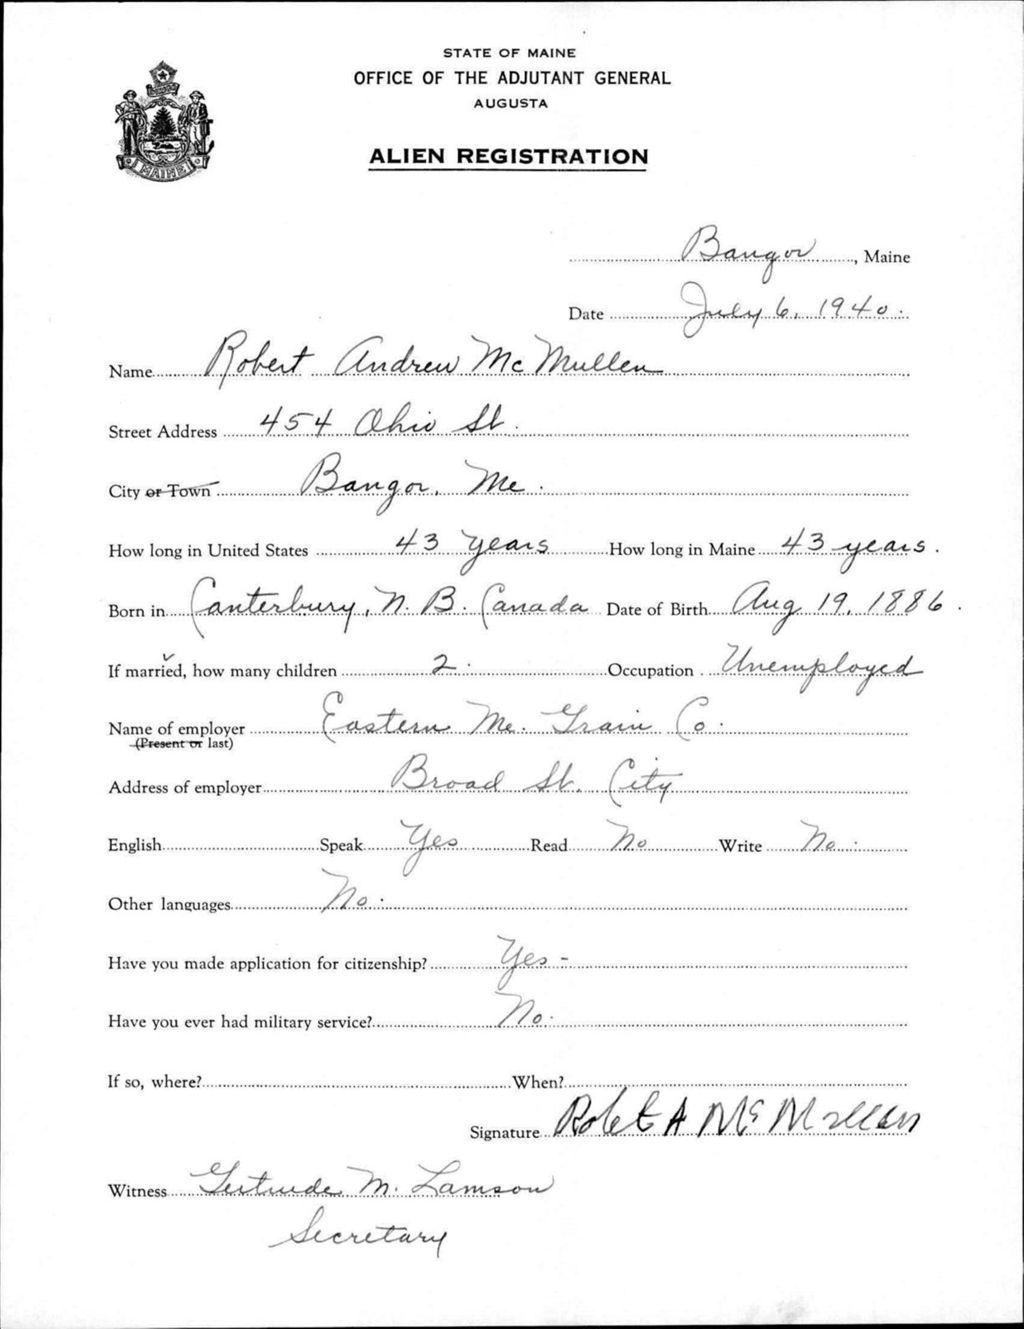 STATE OF MAINE
OFFICE OF THE ADJUTANT GENERAL
AUGUSTA
ALIEN REGISTRATION
MAINE
Bangor, Maine
Date July 6, 1940.
Name Robert Andrew McMullen
Street Address 454 Ohio St.
City or Town Bangor, Me.
How long in United States 43 years How long in Maine 43 years.
Born in Canterbury, N. B. Canada Date of Birth Aug 19, 1886.
If married, how many children 2. Occupation Unemployed
Name of employer Eastern Me. Grain Co.
(Present or last)
Address of employer Broad St. City
English Speak Yes Read No Write No.
Other languages No.
Have you made application for citizenship? Yes -
Have you ever had military service? No.
If so, where? When?
Signature Robert A McMullen
Witness Gertrude M. Lamson
Secretary